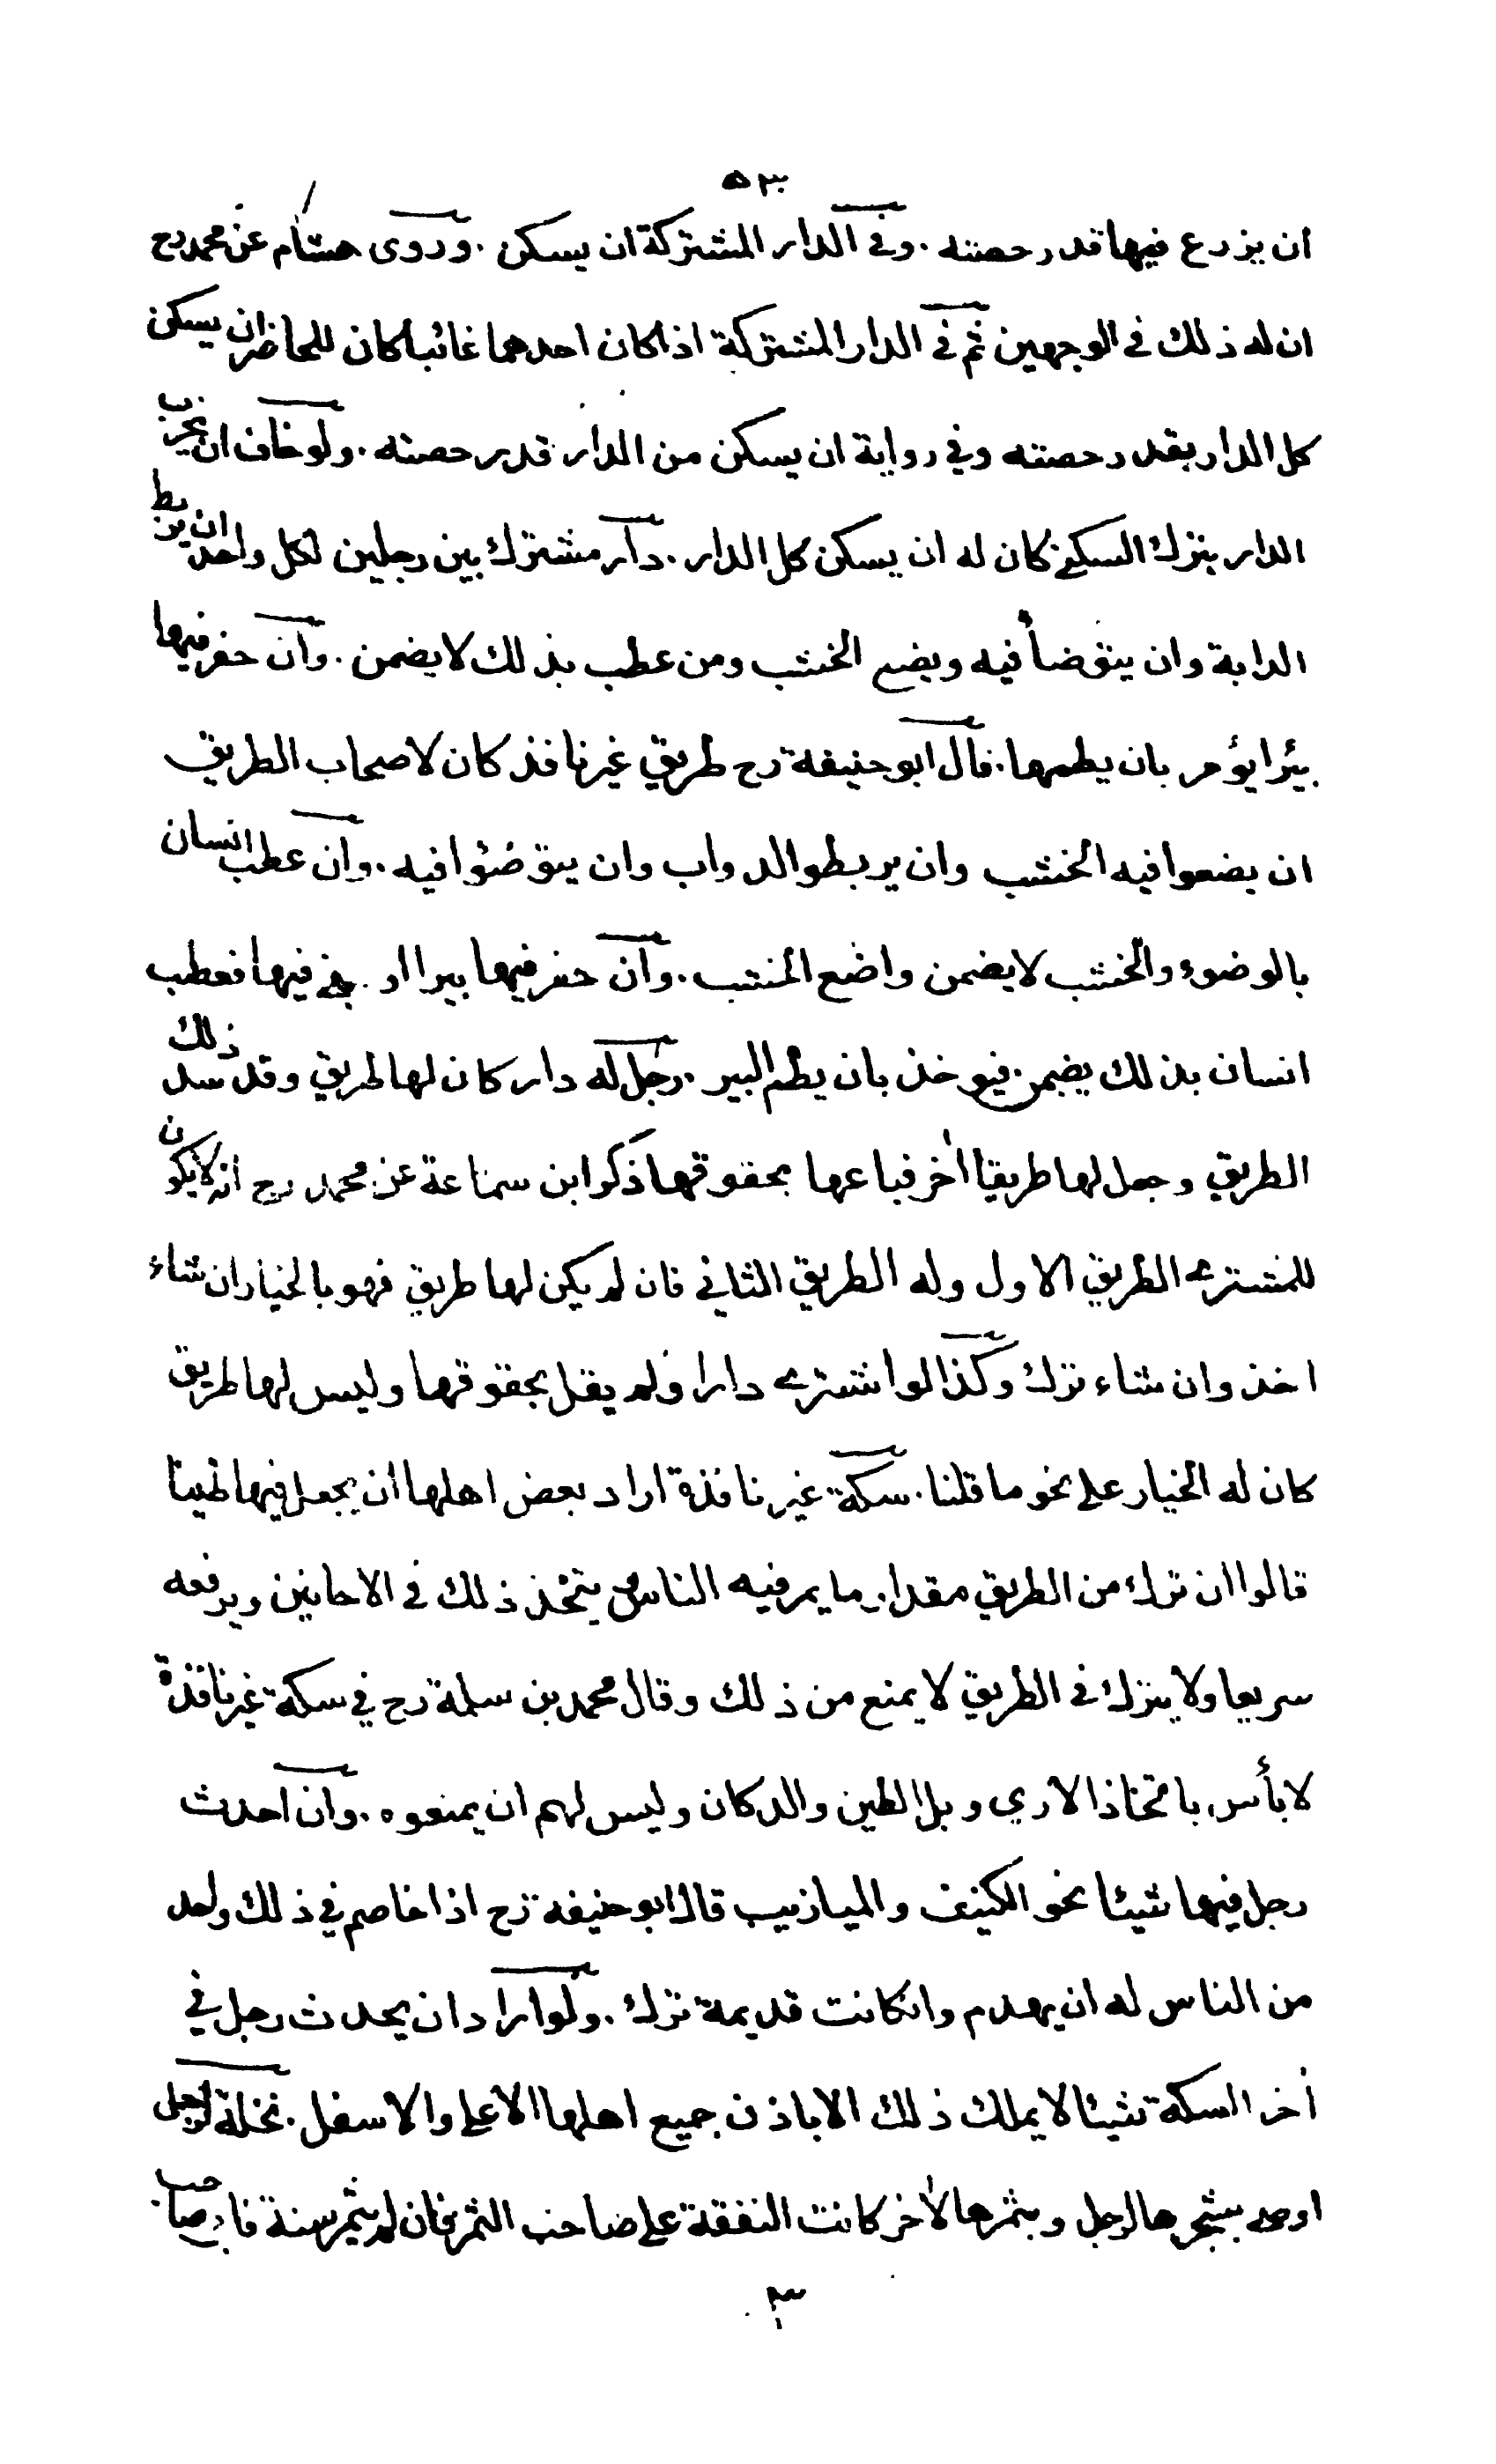 ٥٣
ان يزرع فيها قدر حصته . وفي الدار المشتركة ان يسكن . وروى هشام عن محمد رح
ان له ذلك في الوجهين ثم في الدار المشتركة اذا كان احدهما غائبا كان للحاضر ان يسكن
كل الدار بقدر حصته وفي رواية ان يسكن من الدار قدر حصته . ولو خاف ان يخرب
الدار بترك السكنى كان له ان يسكن كل الدار . دار مشترك بين رجلين لكل واحد ان يربط
الدابة وان يتوضأ فيه ويضع الخشب ومن عطب بذلك لا يضمن . وان حفر فيها
بئرا يؤمر بان يطمها . قال ابو حنيفة رح طريق غير نافذ كان لاصحاب الطريق
ان يضعوا فيه الخشب وان يربطوا الدواب وان يتوضؤا فيه . وان عطب انسان
بالوضوء والخشب لا يضمن واضع الخشب . وان حفر فيها بيرا او بنى فيها فعطب
انسان بذلك يضمن . فيوخذ بان يطم البير . رجل له دار كان لها طريق وقد سد ذلك
الطريق وجعل لها طريقا اخر فباعها بحقوقها ذكر ابن سماعة عن محمد رح انه لا يكون
للمشتري الطريق الاول وله الطريق الثاني فان لم يكن لها طريق فهو بالخيار ان شاء
اخذ وان شاء ترك وكذا لو اشترى دارا ولم يقل بحقوقها وليس لها طريق
كان له الخيار على نحو ما قلنا . سكة غير نافذة اراد بعض اهلها ان يجعل فيها طينا
قالوا ان ترك من الطريق مقدار ما يمر فيه الناس يتخذ ذلك في الاحانين ويرفعه
سريعا ولا يترك في الطريق لا يمنع من ذلك وقال محمد بن سلمة رح في سكة غير نافذة
لا بأس باتخاذ الاري وبل الطين والدكان وليس لهم ان يمنعوه . وان احدث
رجل فيها شيئا نحو الكنيف والميازيب قال ابو حنيفة رح اذا خاصم في ذلك واحد
من الناس له ان يهدم وان كانت قديمة ترك . ولو اراد ان يحدث رجل في
اخر السكة شيئا لا يملك ذلك الا باذن جميع اهلها الاعلى والاسفل . نخلة لرجل
اوصى بشجرها لرجل وبثمرها لاخر كانت النفقة على صاحب الثمر فان لم يثمر سنة فابى صاحب